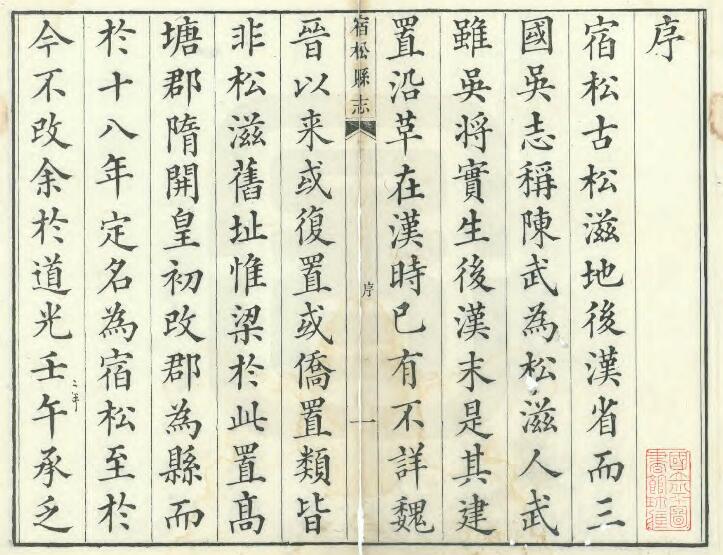 序
宿松古松滋地後漢省而三
國吳志稱陳武為松滋人武
雖吳將實生後漢末是其建
置沿革在漢時已有不詳魏
宿松縣志
序
一
晉以来或復置或僑置類皆
非松滋舊址惟梁於此置高
塘郡隋開皇初改郡為縣而
於十八年定名為宿松至於
今不改余於道光壬午承乏
二年